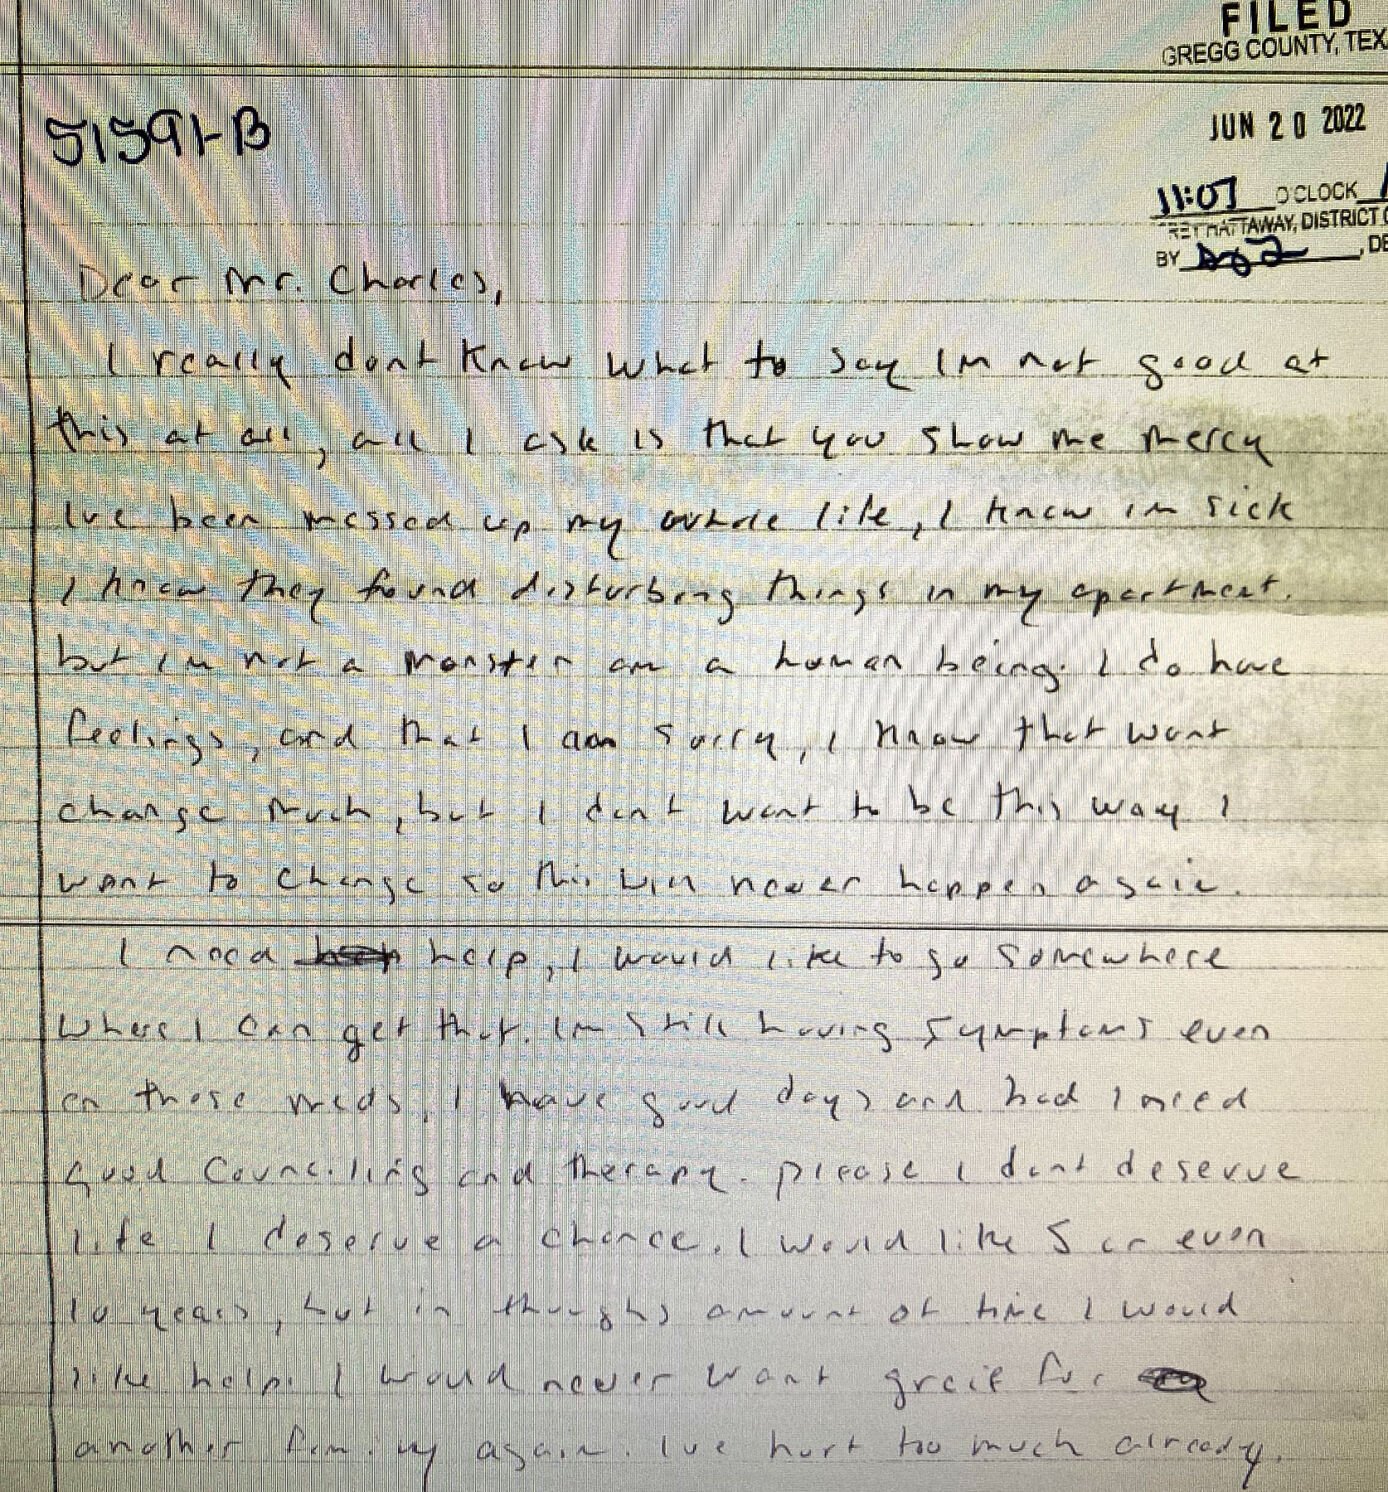 FILED
GREGG COUNTY, TEX
51591-B
JUN 20 2022
11:07 O'CLOCK
HATTAWAY, DISTRICT C
BY , DE
Dear Mr. Charles,
I really dont know what to say Im not good at
this at all, all I ask is that you show me mercy
Ive been messed up my whole life, I know im sick
I know they found disturbing things in my apartment.
but im not a monster am a human being. I do have
feelings, and that I am sorry, I know that wont
change much, but I dont want to be this way I
want to change so this will never happen again.
I need help, I would like to go somewhere
where I can get that. Im still having symptoms even
on these meds, I have good days and bad I need
good Counciling and therapy. please I dont deserve
life I deserve a chance. I would like 5 or even
10 years, but in thoughs amount of time I would
like help. I would never want greif for
another family again. Ive hurt too much already.